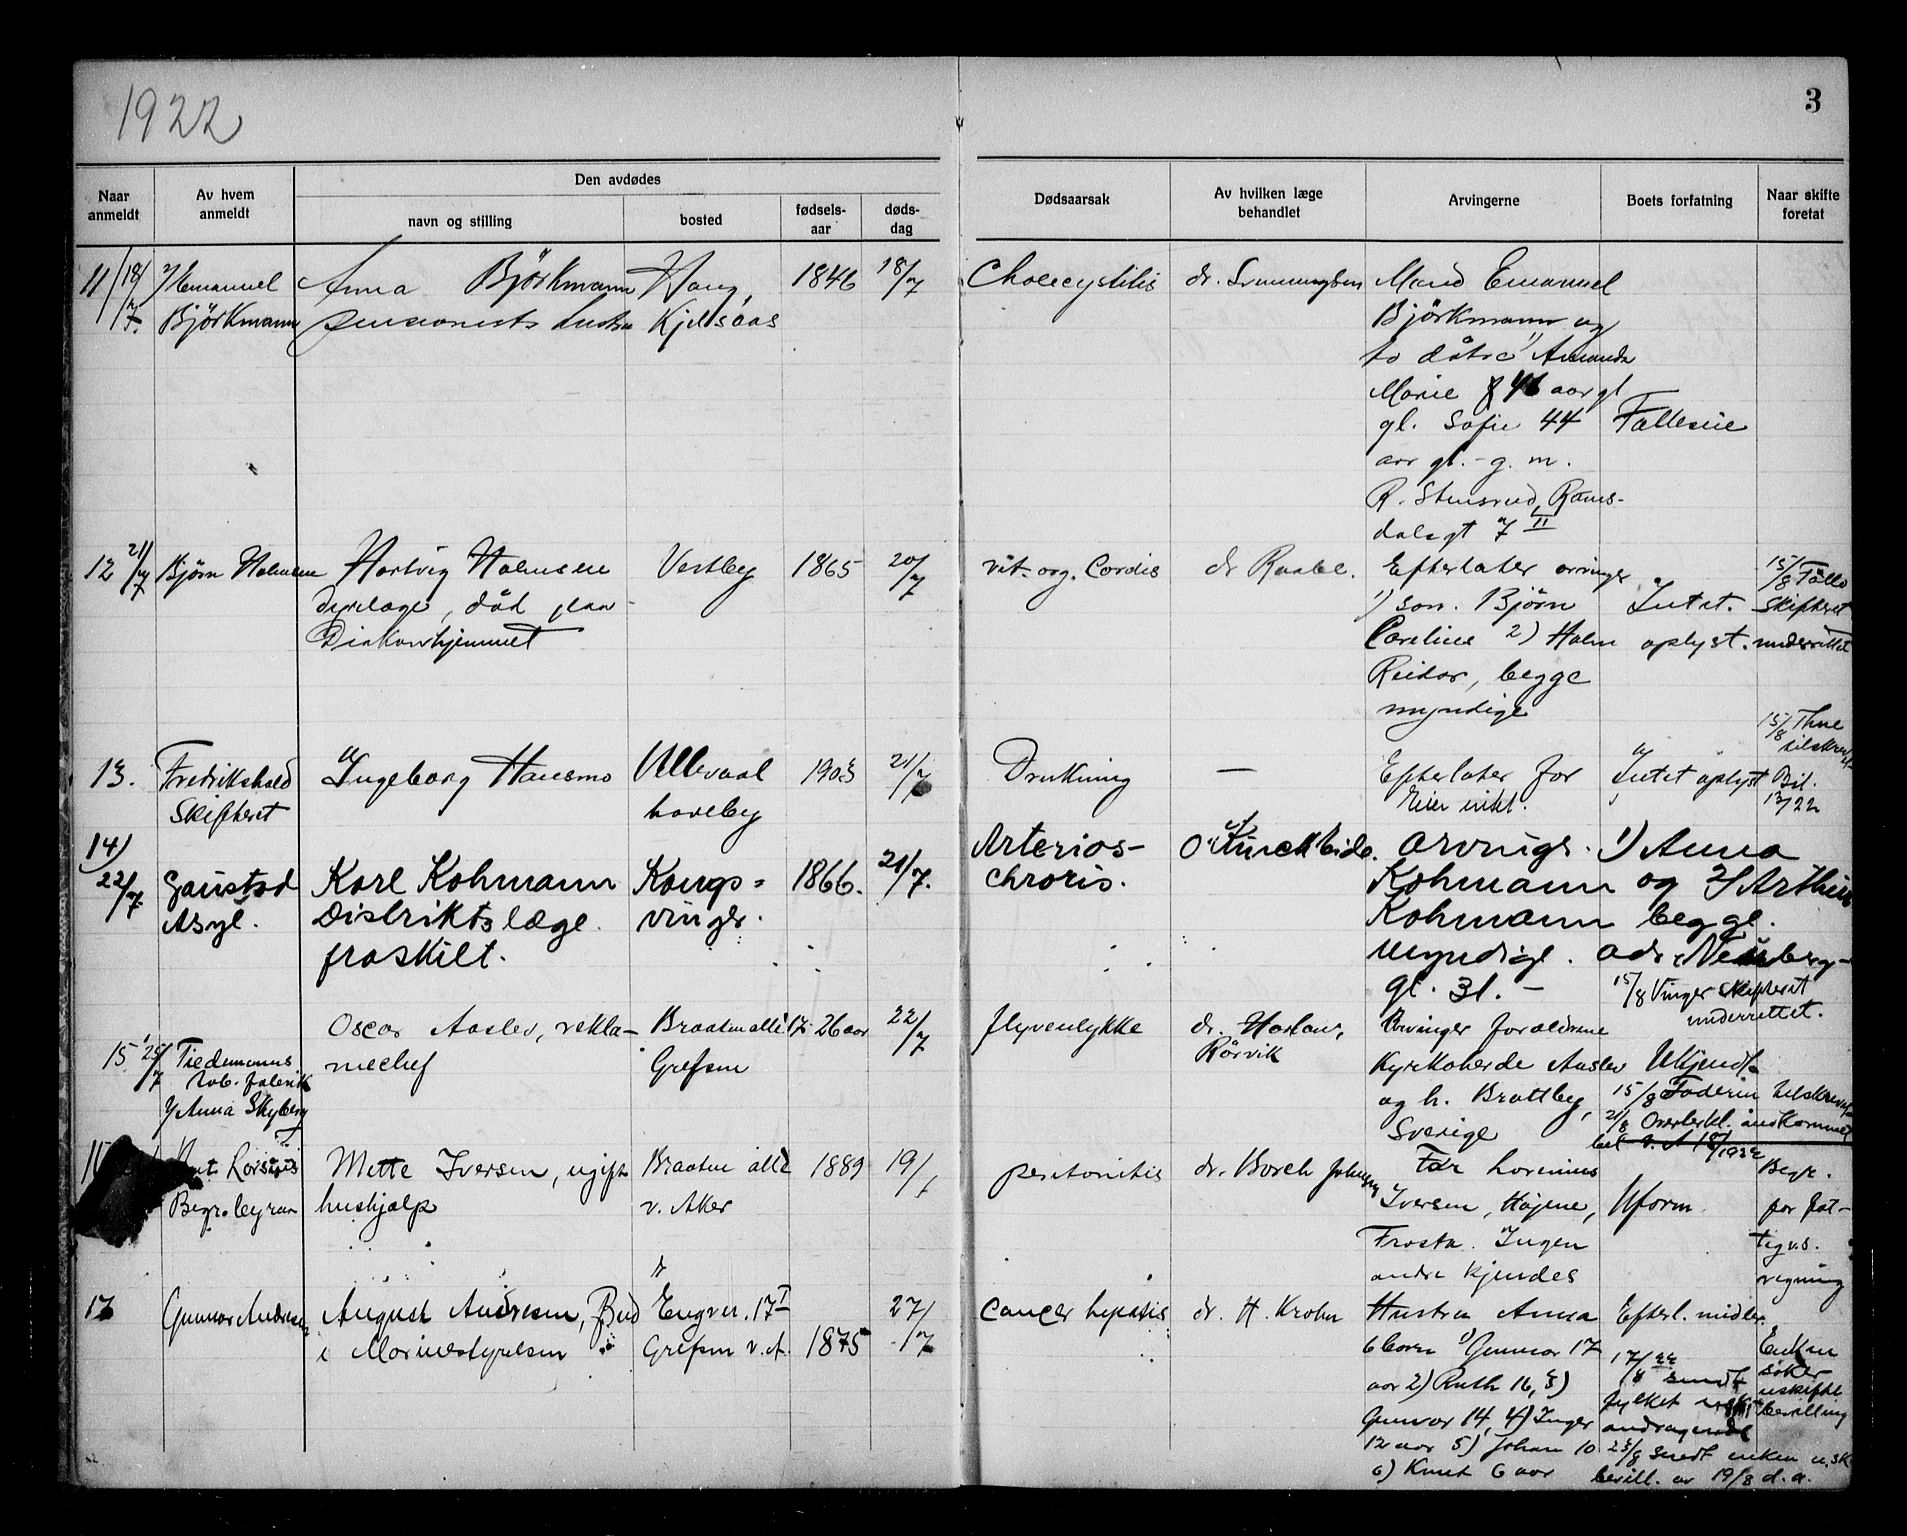 1922
3
Naar anmeldt
Av hvem anmeldt
Den avdødes
navn og stilling
bosted
fødsels-aar
døds-dag
Dødsaarsak
Av hvilken læge behandlet
Arvingerne
Boets forfatning
Naar skifte foretat
11/ 18/7
Emanuel
Björkmann
Anna Björkmann
pensionists hustru
Haug,
Kjelsaas
1846
18/7
Cholecystitis
dr.
Mand Emanuel
Björkmann og
to døtre 1) Amanda
Marie 46 aar gl
gl. Sofie 44
aar gl. - g. m.
R. Stensrud, Roms-
dalsgt 7 II
Fælleseie
12 21/7
Bjørn Holmsen
Hartvig Holmsen
dyrlæge, død paa
Diakonhjemmet
Vestby
1865
20/7
vit. org. Cordis
dr Raabe.
Efterlater arvinger
1) søn. Bjørn
Carelius 2) Holm
Reidar, begge
myndige
Intet
oplyst.
15/8 Follo
Skifteret
underrettet
13.
Fredrikshald
Skifteret
Ingeborg Hansmo
Ullevaal
haveby
1903
21/7
Drukning
—
Efterlater for
Intet oplyst
15/8
tilskrevet
Bil.
13/22
14/
22/7
Gaustad
Asyl.
Karl Kohmann
Distriktslæge
fraskilt.
Kongs=
vinger.
1866.
21/7.
Arterios-
clerosis.
Arvinger. 1) Anna
Kohmann og 2) Arthur
Kohmann begge
Myndige. adr. Neuberg-
gt. 31. -
15/8 Vinger Skifteret
underrettet.
15 25/7
Tiedemanns
tob. fabrik
v/ Anna Skyberg
Oscar Aaslev, rekla-
mechef
Braaten allé 17
Grefsen
26 aar
22/7
flyveulykke
dr. Harlaus,
Rörvik
Arvinger forældrene
Kyrkoherde Aaslev
og h. Brattby,
Sverige
Ukjendt
15/8 Faderen tilskrevet
21/8
Begr.byraa
Mette Iversen, ugift
hushjælp
Braaten allé
v. Aker
1889
19/7
peritonitis
dr. Borch Johnsen
Far Lorentius
Iversen, Højene,
Frosta. Ingen
andre kjendes
Uform.
Begr.
for fat-
tigv.s.
regning
17
Gunnar Andresen
August Andresen, Bud
i Marinestyrelsen
Engver. 17 I
Grefsen v. A.
1875
27/7
Cancer hepatis
dr. H. Krohn
Hustru Anna
6 barn 1) Gunnar 17
aar 2) Ruth 16, 3)
Gunvor 14, 4) Inger
12 aar 5) Johan 10
6) Knut 6 aar
Efterl. midler.
17/8 22 sendt
fylket
andragende
23/8 sendt enken u.sk.
bevill. av 19/8 d. a.
Enken
søker
uskifte
bevilling